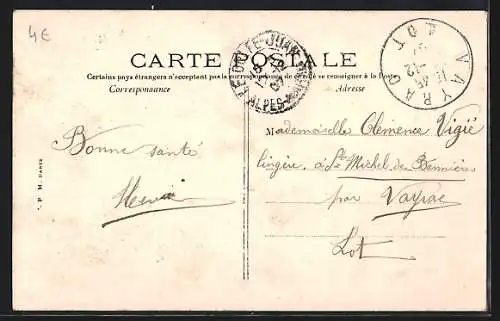 4€
CARTE POSTALE
Certains pays étrangers n'acceptent pas la correspondance de ce côté se renseigner à la Poste
Correspondance
Adresse
GOLFE-JUAN
ALPES-MARITIMES
VAYRAC
LOT
Bonne santé
Mademoiselle Clémence Vigié
lingère, à St Michel de Bannières
par Vayrac
Lot
P. M. PARIS